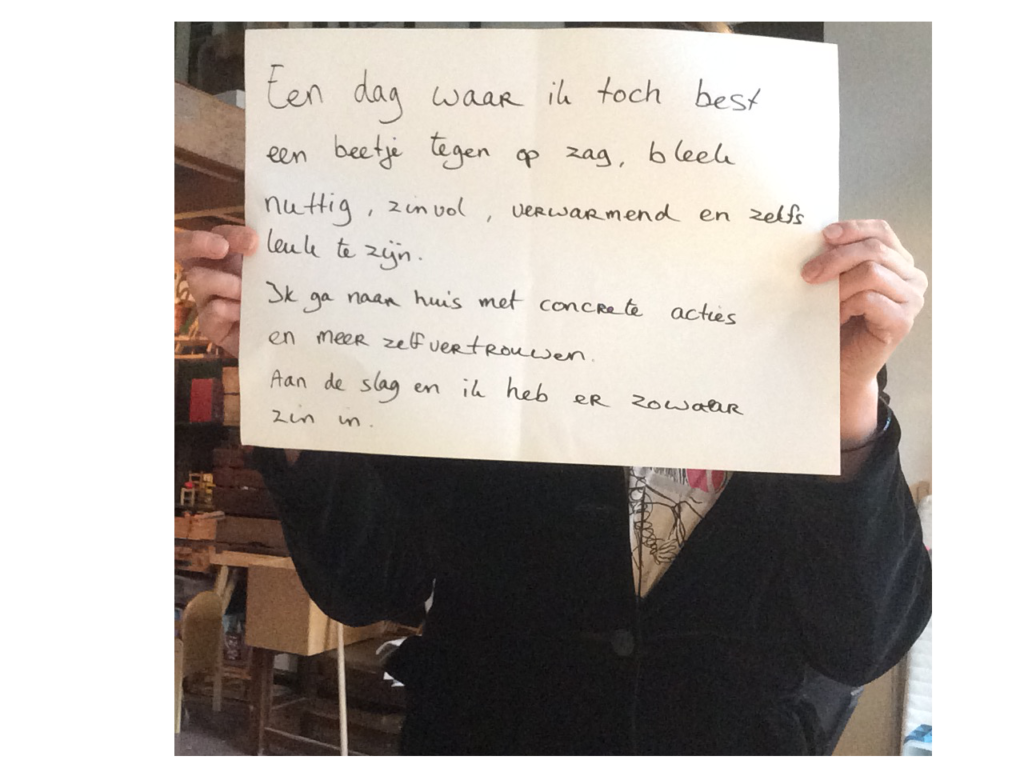 Een dag waar ik toch best
een beetje tegen op zag, bleek
nuttig, zinvol, verwarmend en zelfs
leuk te zijn.
Ik ga naar huis met concrete acties
en meer zelfvertrouwen.
Aan de slag en ik heb er zowaar
zin in.